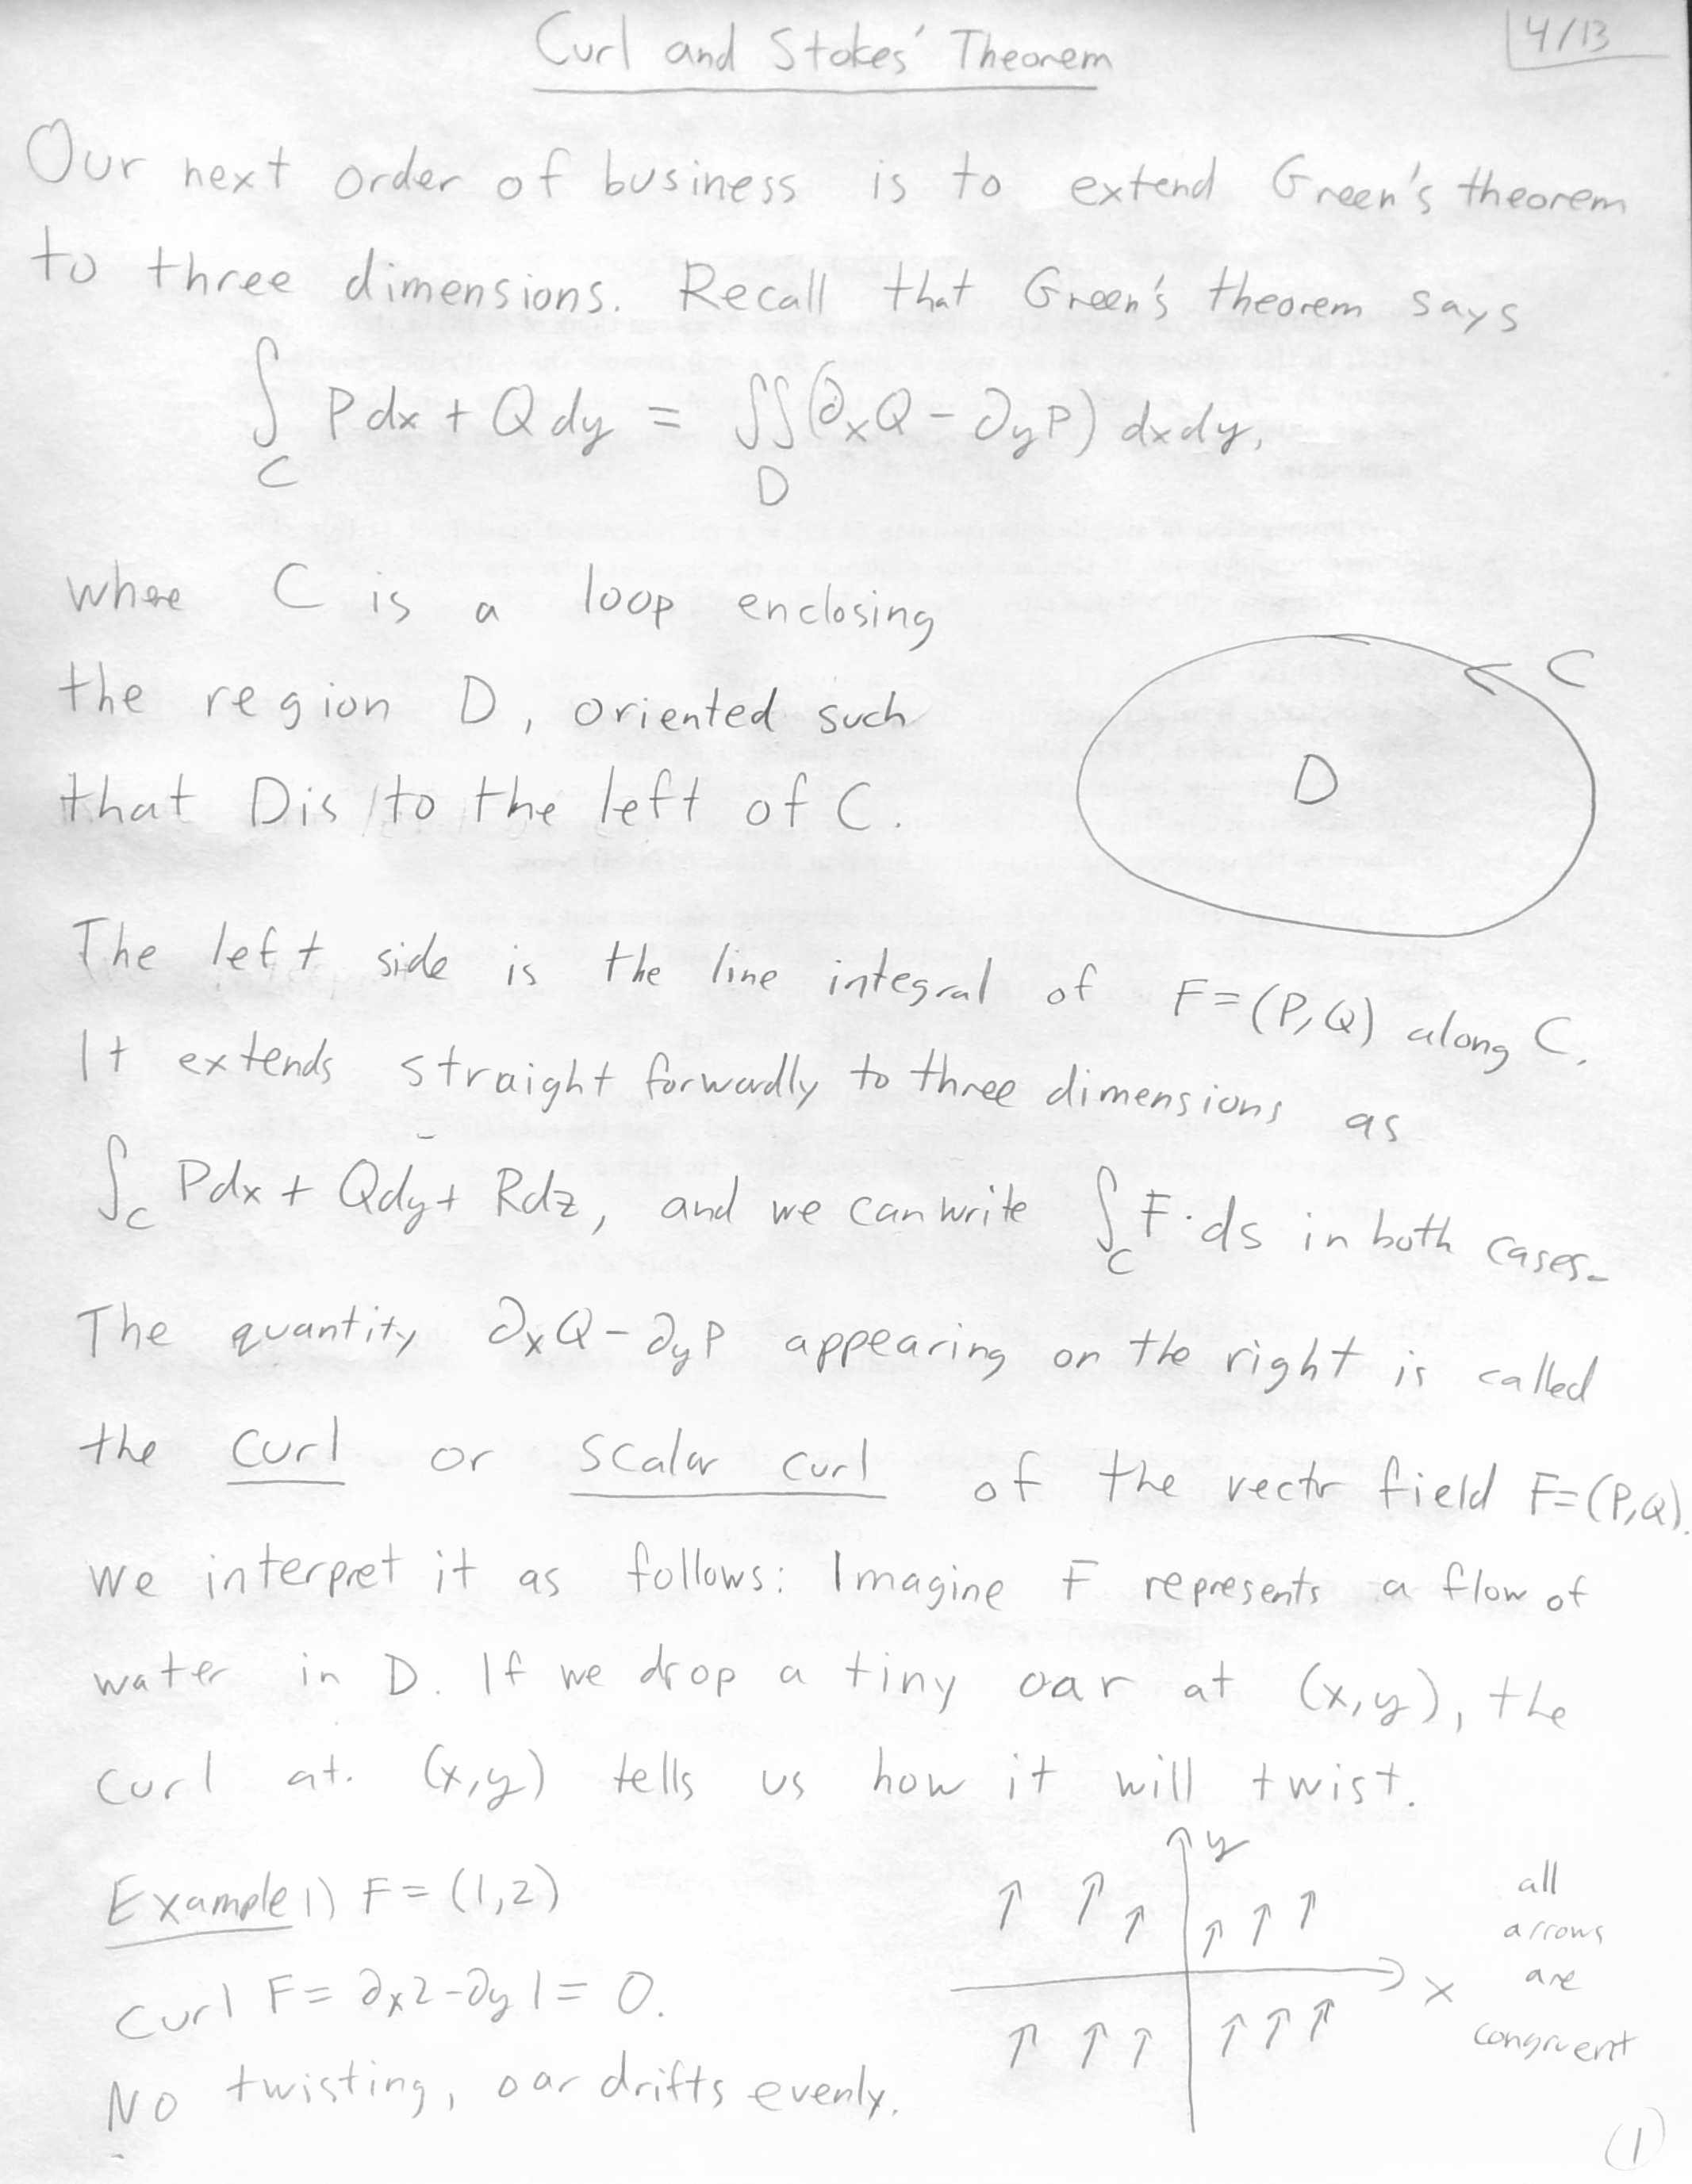 Curl and Stokes' Theorem
4/13
Our next order of business is to extend Green's theorem
to three dimensions. Recall that Green's theorem says
∫_C Pdx + Qdy = ∬_D (∂xQ - ∂yP) dxdy,
where C is a loop enclosing
the region D, oriented such
that D is to the left of C.
C
D
The left side is the line integral of F=(P,Q) along C.
It extends straight forwardly to three dimensions as
∫_C Pdx + Qdy + Rdz, and we can write ∫_C F·ds in both cases.
The quantity ∂xQ - ∂yP appearing on the right is called
the curl or scalar curl of the vector field F=(P,Q).
We interpret it as follows: Imagine F represents a flow of
water in D. If we drop a tiny oar at (x,y), the
curl at (x,y) tells us how it will twist.
Example 1) F = (1,2)
curl F = ∂x2 - ∂y1 = 0.
No twisting, oar drifts evenly.
y
x
all
arrows
are
congruent
1